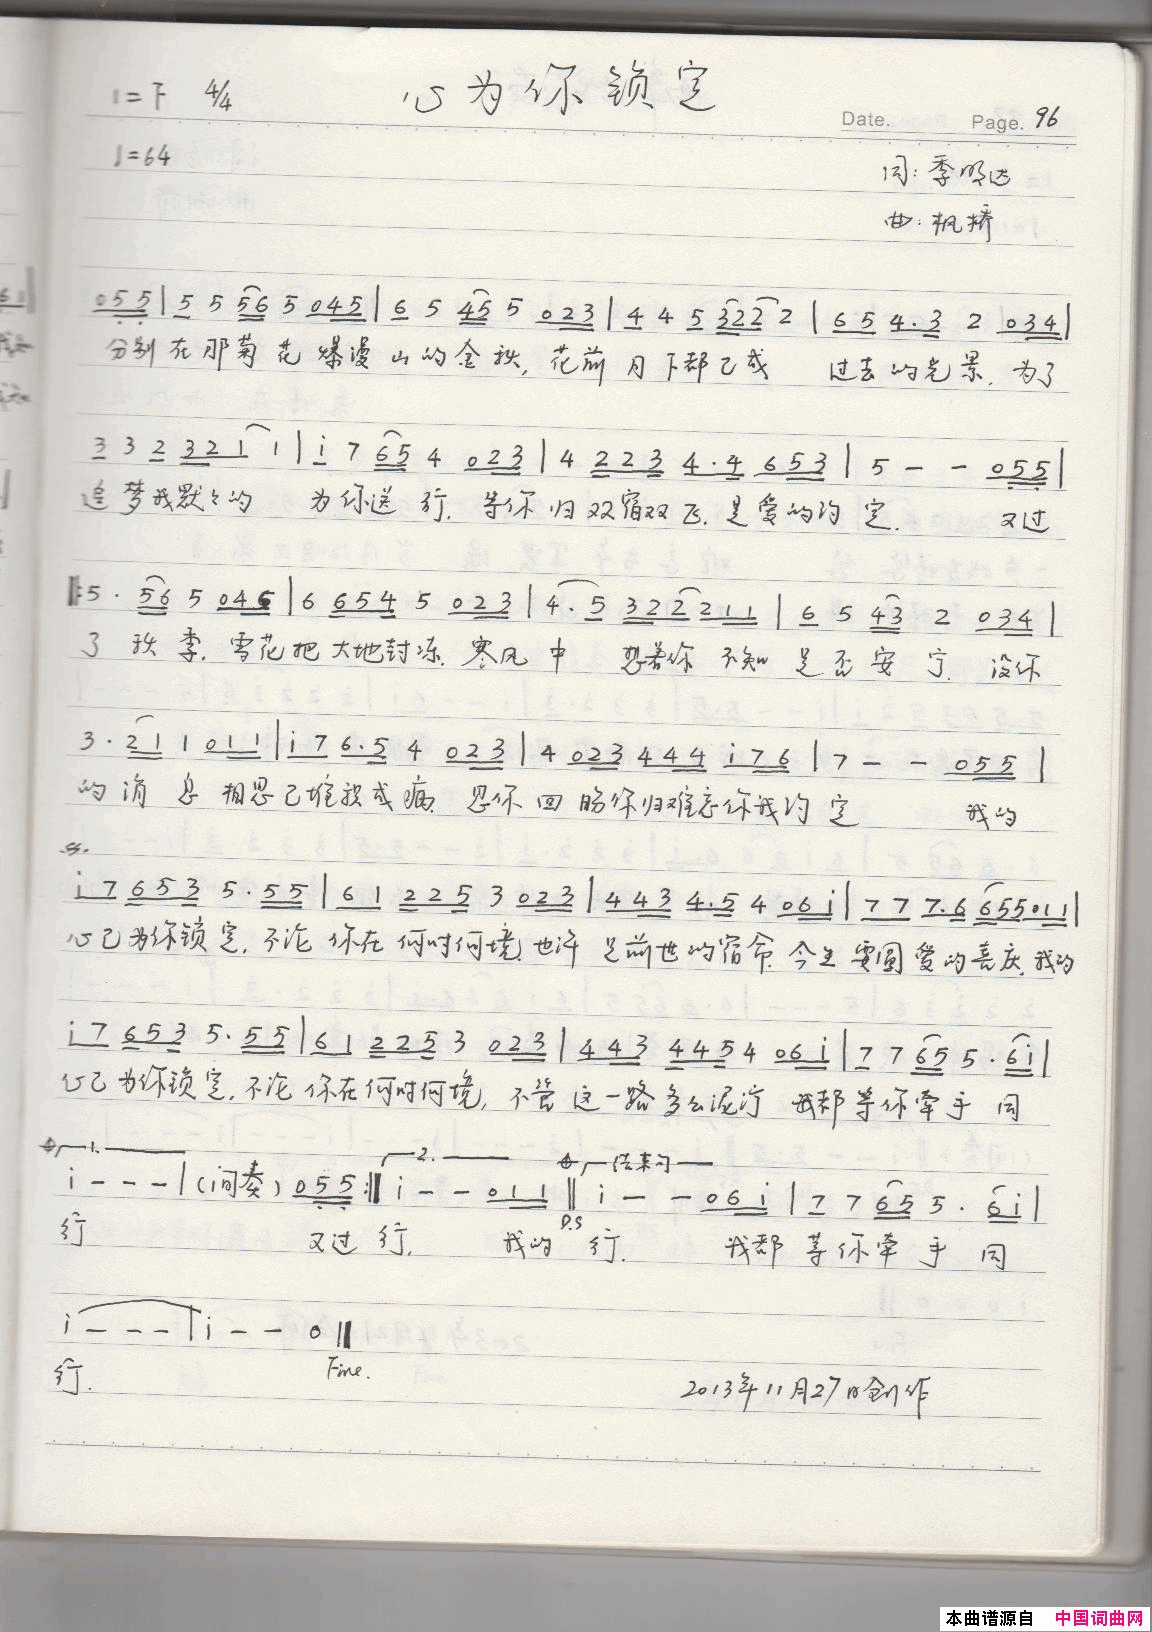 1=F 4/4 心为你锁定
Date. Page. 96
♩=64
词:季明达
曲:枫桥
055|5 5 56 5 045|6 5 45 5 023|4 4 5 322 2|6 5 4·3 2 034|
分别在那菊花爆漫山的金秋,花前月下都已成 过去的光景.为了
3 3 2 3 2 1 1|i 7 65 4 023|4 223 4·4 653|5 - - 055|
追梦我默々的 为你送行.等你归双宿双飞.是爱的约定. 又过
‖:5· 56 5 046|6 654 5 023|4·5 322211|6 5 43 2 034|
了秋季.雪花把大地封冻.寒风中 想着你不知是否安宁.没你
3· 21 1 011|i 7 6·5 4 023|4 023 444 i76|7 - - 055|
的消息 相思已堆积成病.思你回盼你归难忘你我约定 我的
i 7 653 5·55|61 225 3 023|443 4·5 4 06i|7 7 7·6 655011|
心已为你锁定,不论你在何时何境.也许是前世的宿命.今生要圆爱的喜庆.我的
i 7 653 5·55|61 225 3 023|443 445 4 06i|7 7 65 5·6i|
心已为你锁定.不论你在何时何境,不管这一路多么泥泞 我都等你牵手同
1. 2. 结束句
i - - -|(间奏)055:‖i - - 011‖i - - 06i|7 7 65 5·6i|
D.S
行 又过行. 我的行. 我都等你牵手同
i - - -|i - - 0‖
行. Fine.
2013年11月27日创作
本曲谱源自 中国词曲网